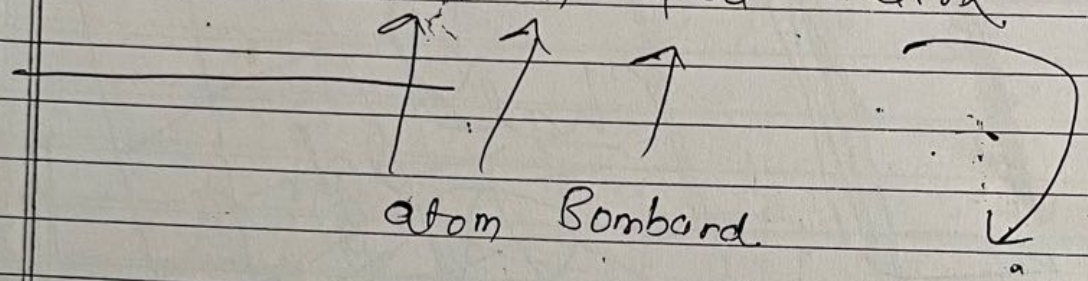 atom Bombard